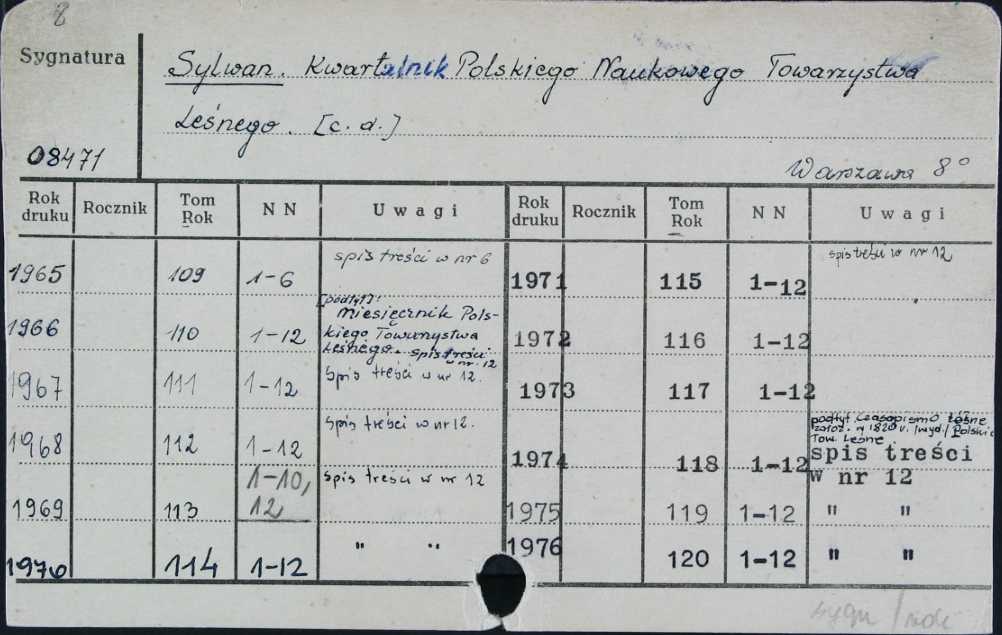 8
Sygnatura
Sylwan. Kwartalnik Polskiego Naukowego Towarzystwa
Leśnego. [c.d.]
08471
Warszawa 8°
Rok druku Rocznik Tom Rok NN Uwagi Rok druku Rocznik Tom Rok NN Uwagi
1965 109 1-6 spis treści w nr 6 1971 115 1-12 spis treści w nr 12
1966 110 1-12 [podtyt.]: Miesięcznik Pols-
kiego Towarzystwa
Leśnego. spis treści
w nr. 12
1972 116 1-12
1967 111 1-12 Spis treści w nr 12. 1973 117 1-12
1968 112 1-12 spis treści w nr 12. 1974 118 1-12 podtyt. Czasopismo Leśne
założ. w 1820 r. /wyd./ Polskie
Tow. Leśne.
spis treści
w nr 12
1969 113 1-10, 12 spis treści w nr 12 1975 119 1-12 " "
1970 114 1-12 " " 1976 120 1-12 " "